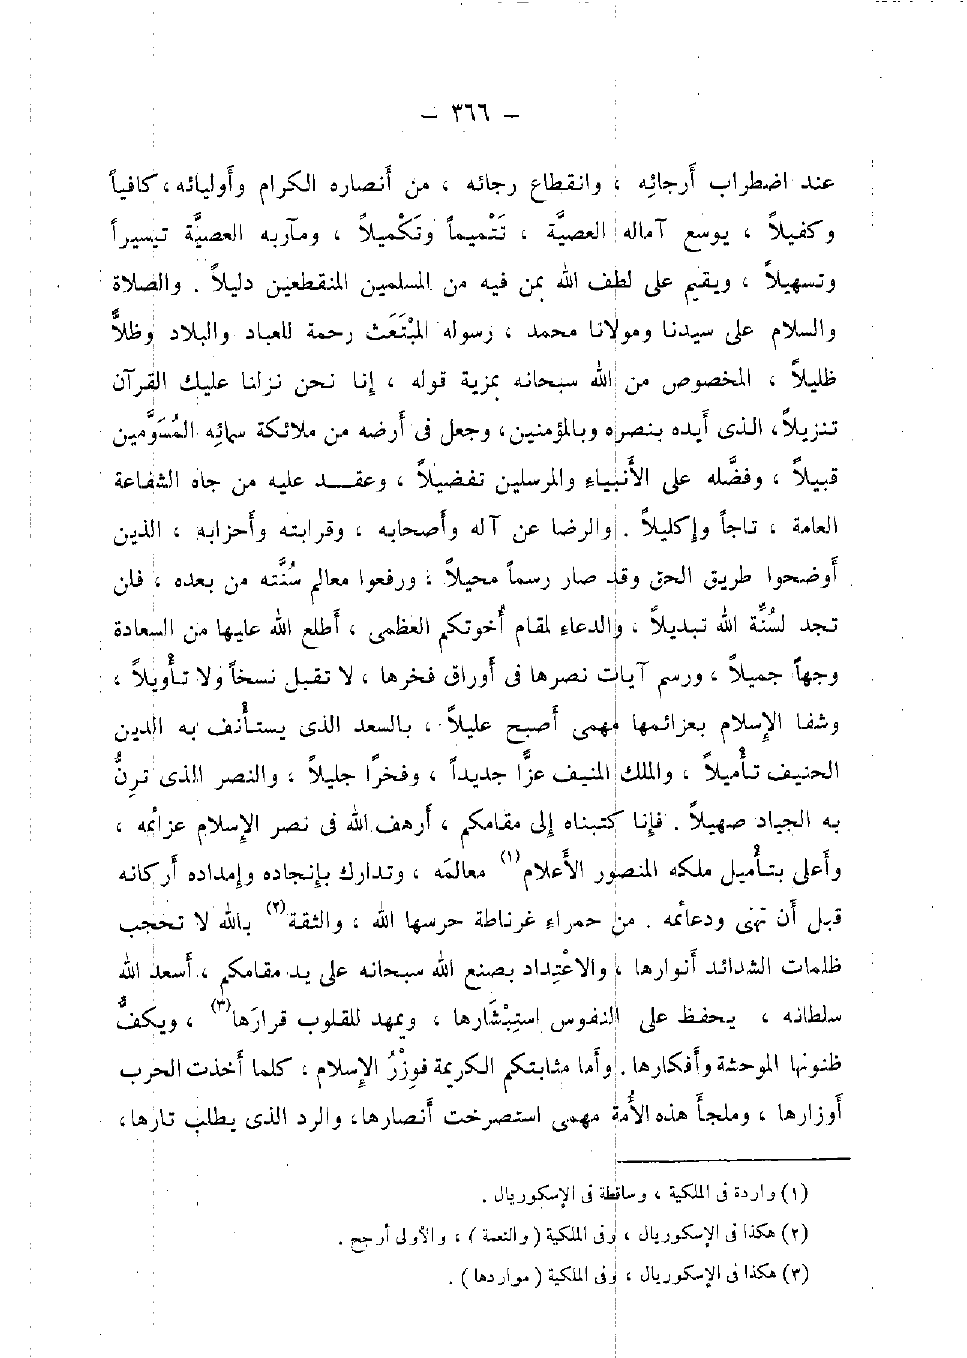 – ٣٦٦ –
عند اضطراب أرجائه ، وانقطاع رجائه ، من أنصاره الكرام وأوليائه ، كافياً
وكفيلاً ، يوسع آماله العصيَّة ، تَتْميماً وتَكْميلاً ، ومآربه العصيَّة تيسيراً
وتسهيلاً ، ويقيم على لطف الله بمن فيه من المسلمين المنقطعين دليلاً . والصلاة
والسلام على سيدنا ومولانا محمد ، رسوله المبْتَعَث رحمة للعباد والبلاد وظلاًّ
ظليلاً ، المخصوص من الله سبحانه بمزية قوله ، إنا نحن نزلنا عليك القرآن
تنزيلاً ، الذى أيده بنصره وبالمؤمنين ، وجعل فى أرضه من ملائكة سمائِه المُسَوَّمين
قبيلاً ، وفضَّله على الأنبياءِ والمرسلين تفضيلاً ، وعقـــد عليه من جاه الشفاعة
العامة ، تاجاً وإكليلاً . والرضا عن آله وأصحابه ، وقرابته وأحزابه ، الذين
أوضحوا طريق الحق وقد صار رسماً محيلاً ، ورفعوا معالم سُنَّته من بعده ، فلن
تجد لسُنَّة الله تبديلاً ، والدعاء لمقام أُخوتكم العظمى ، أطلع الله عليها من السعادة
وجهاً جميلاً ، ورسم آيات نصرها فى أوراق فخرها ، لا تقبل نسخاً ولا تأْويلاً ،
وشفا الإِسلام بعزائمها مهمى أصبح عليلاً ، بالسعد الذى يستأْنف به الدين
الحنيف تأْميلاً ، والملك المنيف عزًّا جديداً ، وفخرًا جليلاً ، والنصر الذى ترِنُّ
به الجياد صهيلاً . فإنا كتبناه إلى مقامكم ، أرهف الله فى نصر الإسلام عزائمه ،
وأعلى بتأْميل ملكه المنصور الأَعلام (١) معالمَه ، وتدارك بإنجاده وإمداده أركانه
قبل أن تهَى ودعائمه . من حمراءِ غرناطة حرسها الله ، والثقة (٢) بالله لا تحجب
ظلمات الشدائد أنوارها ، والاعْتِداد بصنع الله سبحانه على يد مقامكم ، أسعد الله
سلطانه ، يحفظ على النفوس استِبْشَارها ، ويمهد للقلوب قرارَها (٣) ، ويكفُّ
ظنونها الموحشة وأفكارها . وأما مثابتكم الكريمة فوِزْرُ الإِسلام ، كلما أخذت الحرب
أوزارها ، وملجأ هذه الأُمة مهمى استصرخت أنصارها ، والرد الذى يطلب تارها ،
(١) واردة فى الملكية ، وساقطة فى الإسكوريال .
(٢) هكذا فى الإسكوريال ، وفى الملكية ( والنعمة ) ، والأولى أرجح .
(٣) هكذا فى الإسكوريال ، وفى الملكية ( مواردها ) .